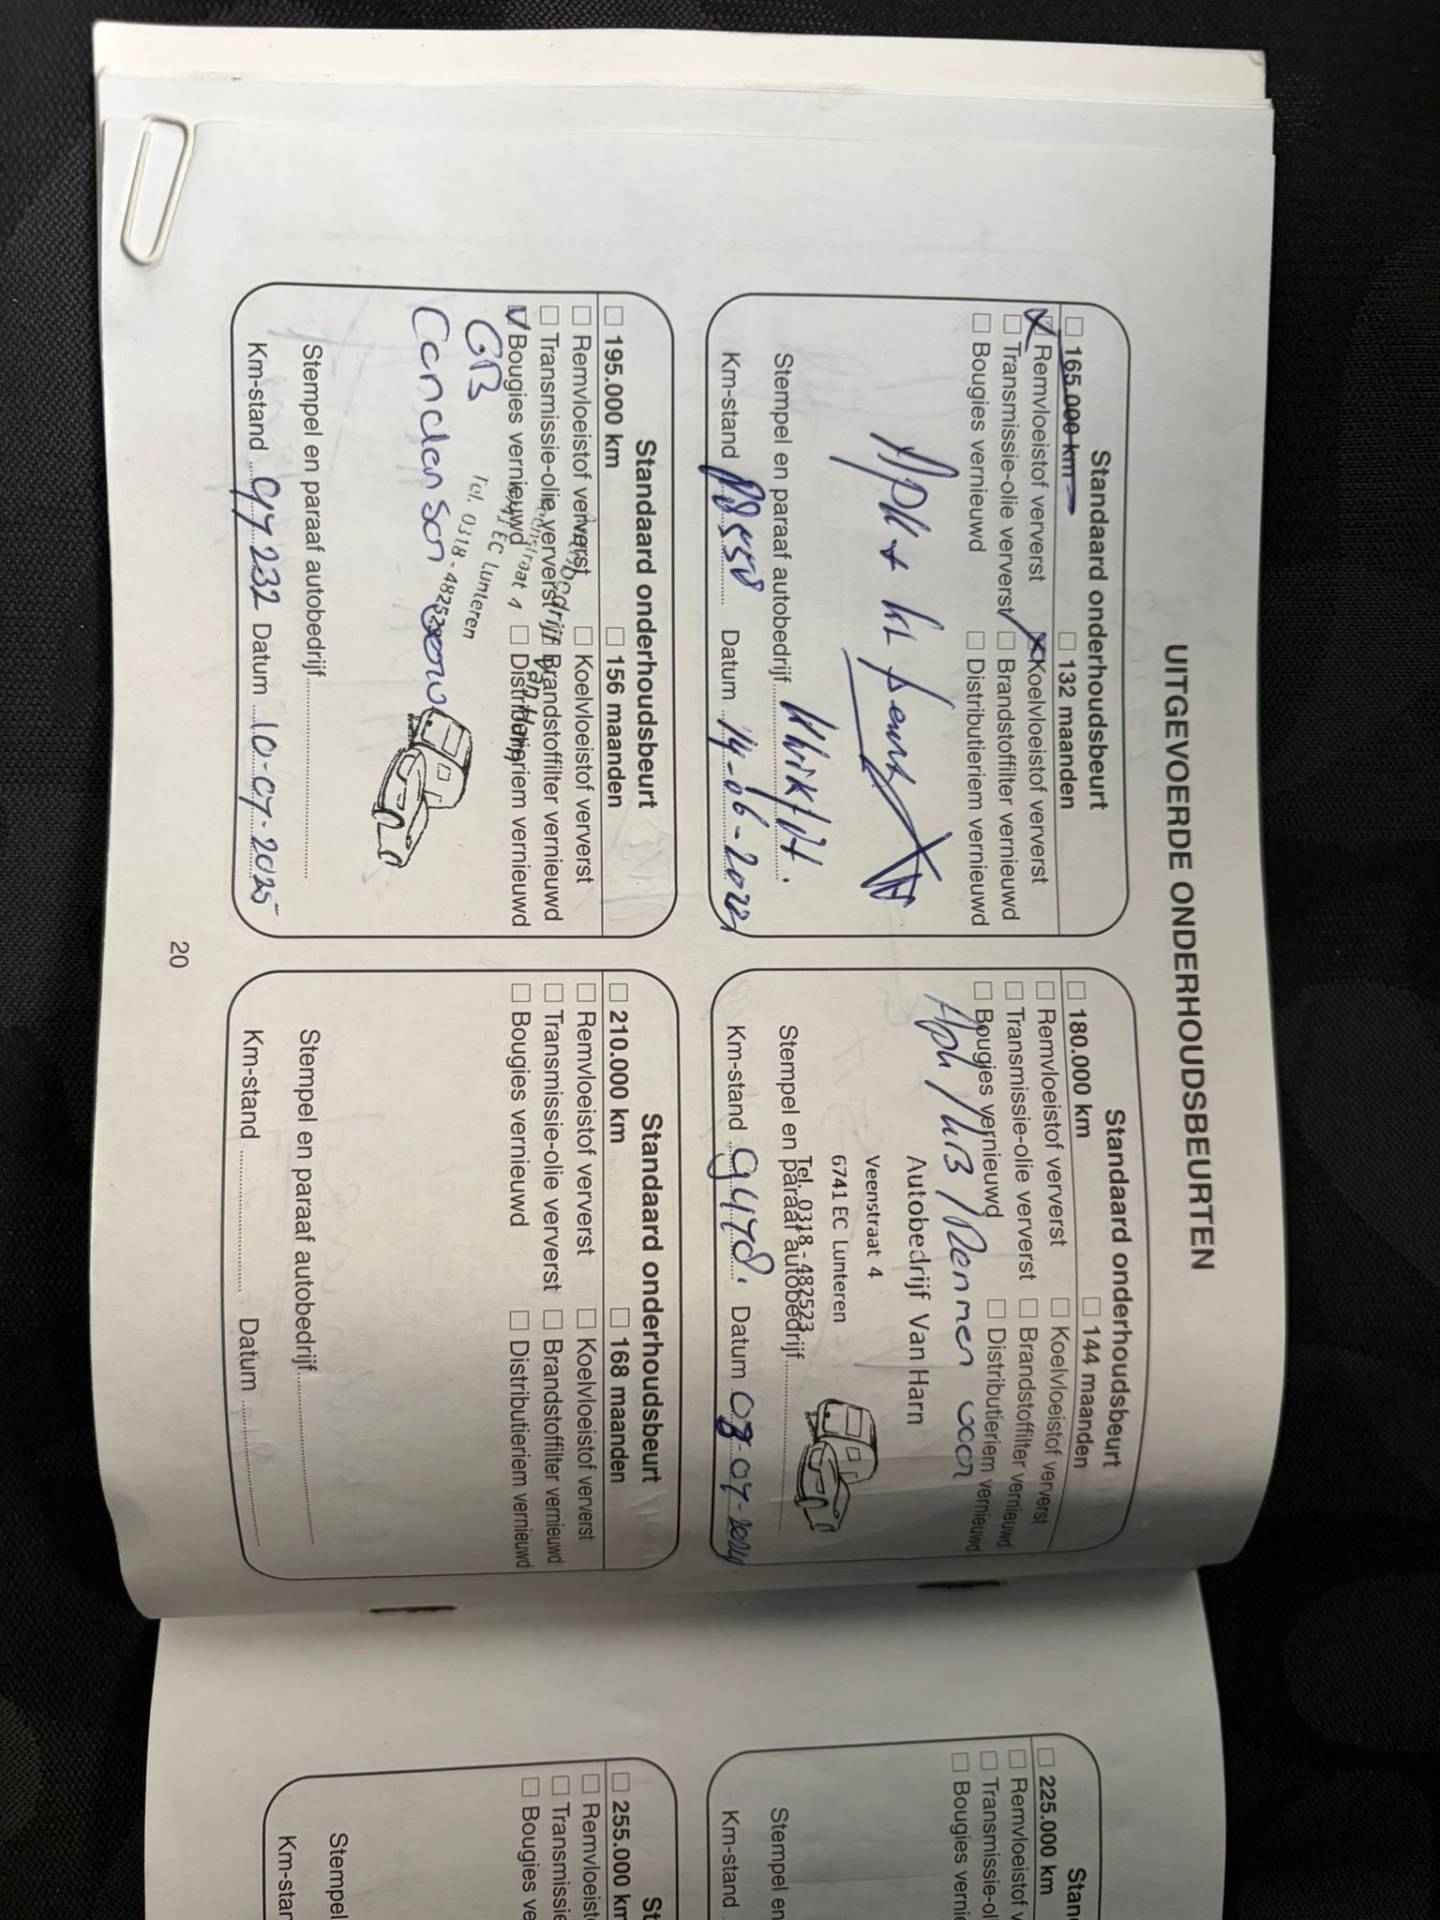 UITGEVOERDE ONDERHOUDSBEURTEN
Standaard onderhoudsbeurt
165.000 km 132 maanden
Remvloeistof ververst Koelvloeistof ververst
Transmissie-olie ververst Brandstoffilter vernieuwd
Bougies vernieuwd Distributieriem vernieuwd
Apk + kl beurt
Stempel en paraaf autobedrijf Kwikfit.
Km-stand Datum 14-06-2022
Standaard onderhoudsbeurt
180.000 km 144 maanden
Remvloeistof ververst Koelvloeistof ververst
Transmissie-olie ververst Brandstoffilter vernieuwd
Bougies vernieuwd Distributieriem vernieuwd
Apk / / Remmen voor
Autobedrijf Van Harn
Veenstraat 4
6741 EC Lunteren
Tel. 0318 - 482523
Stempel en paraaf autobedrijf
Km-stand Datum 08-07-2024
Standaard onderhoudsbeurt
195.000 km 156 maanden
Remvloeistof ververst Koelvloeistof ververst
Transmissie-olie ververst Brandstoffilter vernieuwd
Bougies vernieuwd Distributieriem vernieuwd
EC Lunteren
Tel. 0318 - 482523
GB
Stempel en paraaf autobedrijf
Km-stand 97232 Datum 10-07-2025
Standaard onderhoudsbeurt
210.000 km 168 maanden
Remvloeistof ververst Koelvloeistof ververst
Transmissie-olie ververst Brandstoffilter vernieuwd
Bougies vernieuwd Distributieriem vernieuwd
Stempel en paraaf autobedrijf
Km-stand Datum
20
Stan
225.000 km
Remvloeistof v
Transmissie-ol
Bougies verni
Stempel en
Km-stand
St
255.000 km
Remvloeist
Transmissie
Bougies ve
Stempel
Km-stan